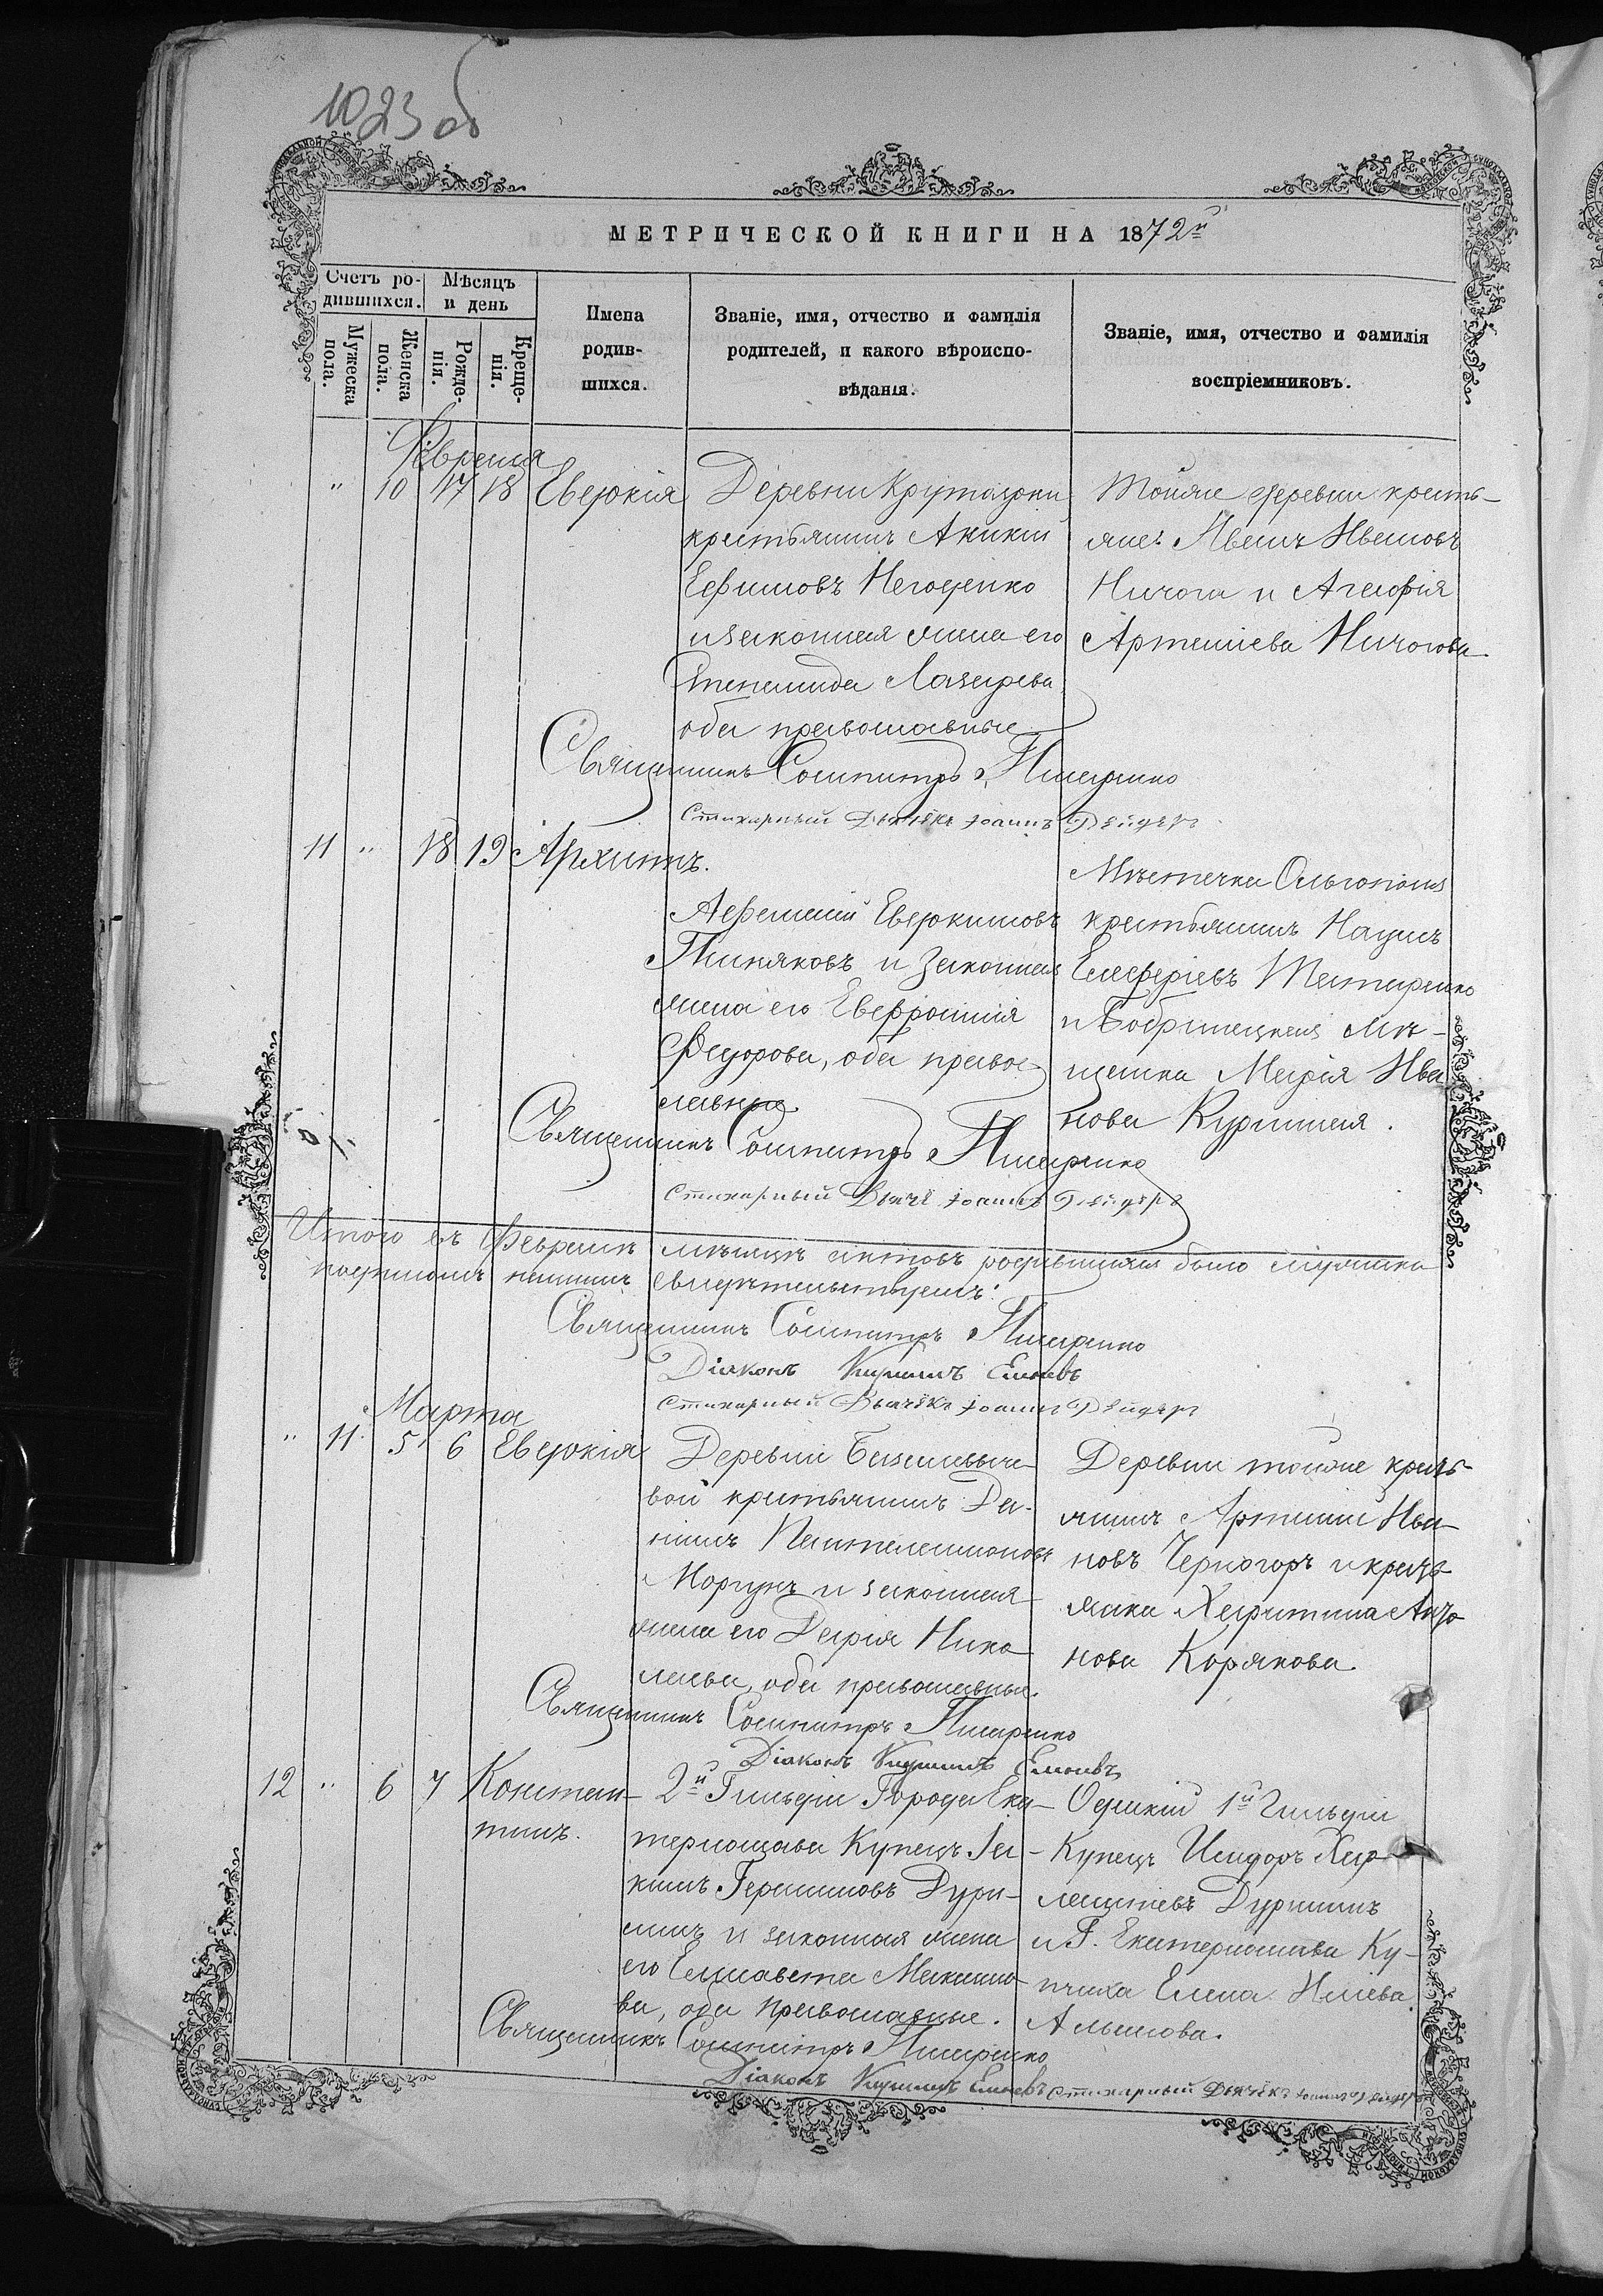 1023 об
МЕТРИЧЕСКОЙ КНИГИ НА 1872й
Счетъ ро-
дившихся.
Мѣсяцъ
и день
Мужеска
пола.
Женска
пола.
Рожде-
нія.
Креще-
нія.
Имена
родив-
шихся.
Званіе, имя, отчество и фамилія
родителей, и какого вѣроиспо-
вѣданія.
Званіе, имя, отчество и фамилія
воспріемниковъ.
Февраля
" 10 17 18 Евдокія
Деревни
крестьянинъ Акикій
Ефимовъ Негоденко
и законная жена его
Степанида Лазарева
оба православные
Тойже деревни кресть-
яне: Иванъ Ивановъ
Ничога и Агафія
Артеміева Ничогова
Священникъ Сосипатръ Писаренко
Стихарный Дьячёкъ Іоаннъ
11 " 18 19 Архипъ.
Афанасій Евдокимовъ
и законная
жена его Евфросинія
Федорова, оба право-
славные
Мѣстечка Ольгополя
крестьянинъ Наумъ
Елеферіевъ Татаренко
и Бобринецкая мѣ-
щанка Марія Ива
нова
Священникъ Сосипатръ Писаренко
Стихарный Дьячё Іоаннъ
Итого въ Февралѣ мѣсяцѣ актовъ родившихся было
подписомъ нашимъ свидѣтельствуемъ:
Священникъ Сосипатръ Писаренко
Діаконъ Кириллъ
Стихарный Дьячёкъ Іоаннъ
Марта
" 11 5 6 Евдокія
Деревни
вой крестьянинъ Да-
ніилъ Пантелеимоновъ
Моргунъ и законная
жена его Дарія Нико
лаева, оба православные.
Деревни тойже кресть-
янинъ Артемій Ива-
новъ Черногоръ и кресть
янка Харитина Анто
нова Корякова.
Священникъ Сосипатръ Писаренко
Діаконъ Кириллъ
12 " 6 7 Констан-
тинъ.
2й Гильдіи Города Ека-
теринослава Купецъ Іа-
кимъ Герасимовъ Дури-
линъ и законная жена
его Елисавета Максимо-
ва, оба православные.
Одесскій 1й Гильдіи
Купецъ Исидоръ Хар-
лампіевъ Дурилинъ
и Г. Екатеринослава Ку-
пчиха Елена Иліева
Священникъ Сосипатръ Писаренко
Діаконъ Кириллъ
Стихарный Дьячёкъ Іоаннъ